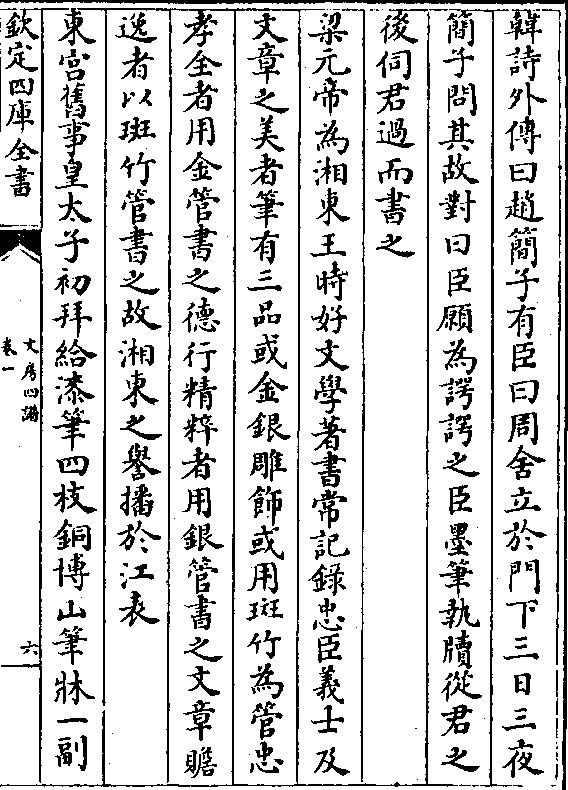 韓詩外傳曰趙簡子有臣曰周舍立於門下三日三夜
簡子問其故對曰臣願為諤諤之臣墨筆執牘從君之
後伺君過而書之
梁元帝為湘東王時好文學著書常記録忠臣義士及
文章之美者筆有三品或金銀雕飾或用斑竹為管忠
孝全者用金管書之德行精粹者用銀管書之文章贍
逸者以斑竹管書之故湘東之譽播於江表
東宫舊事皇太子初拜給漆筆四枝銅博山筆牀一副
欽定四庫全書
文房四譜
卷一
六